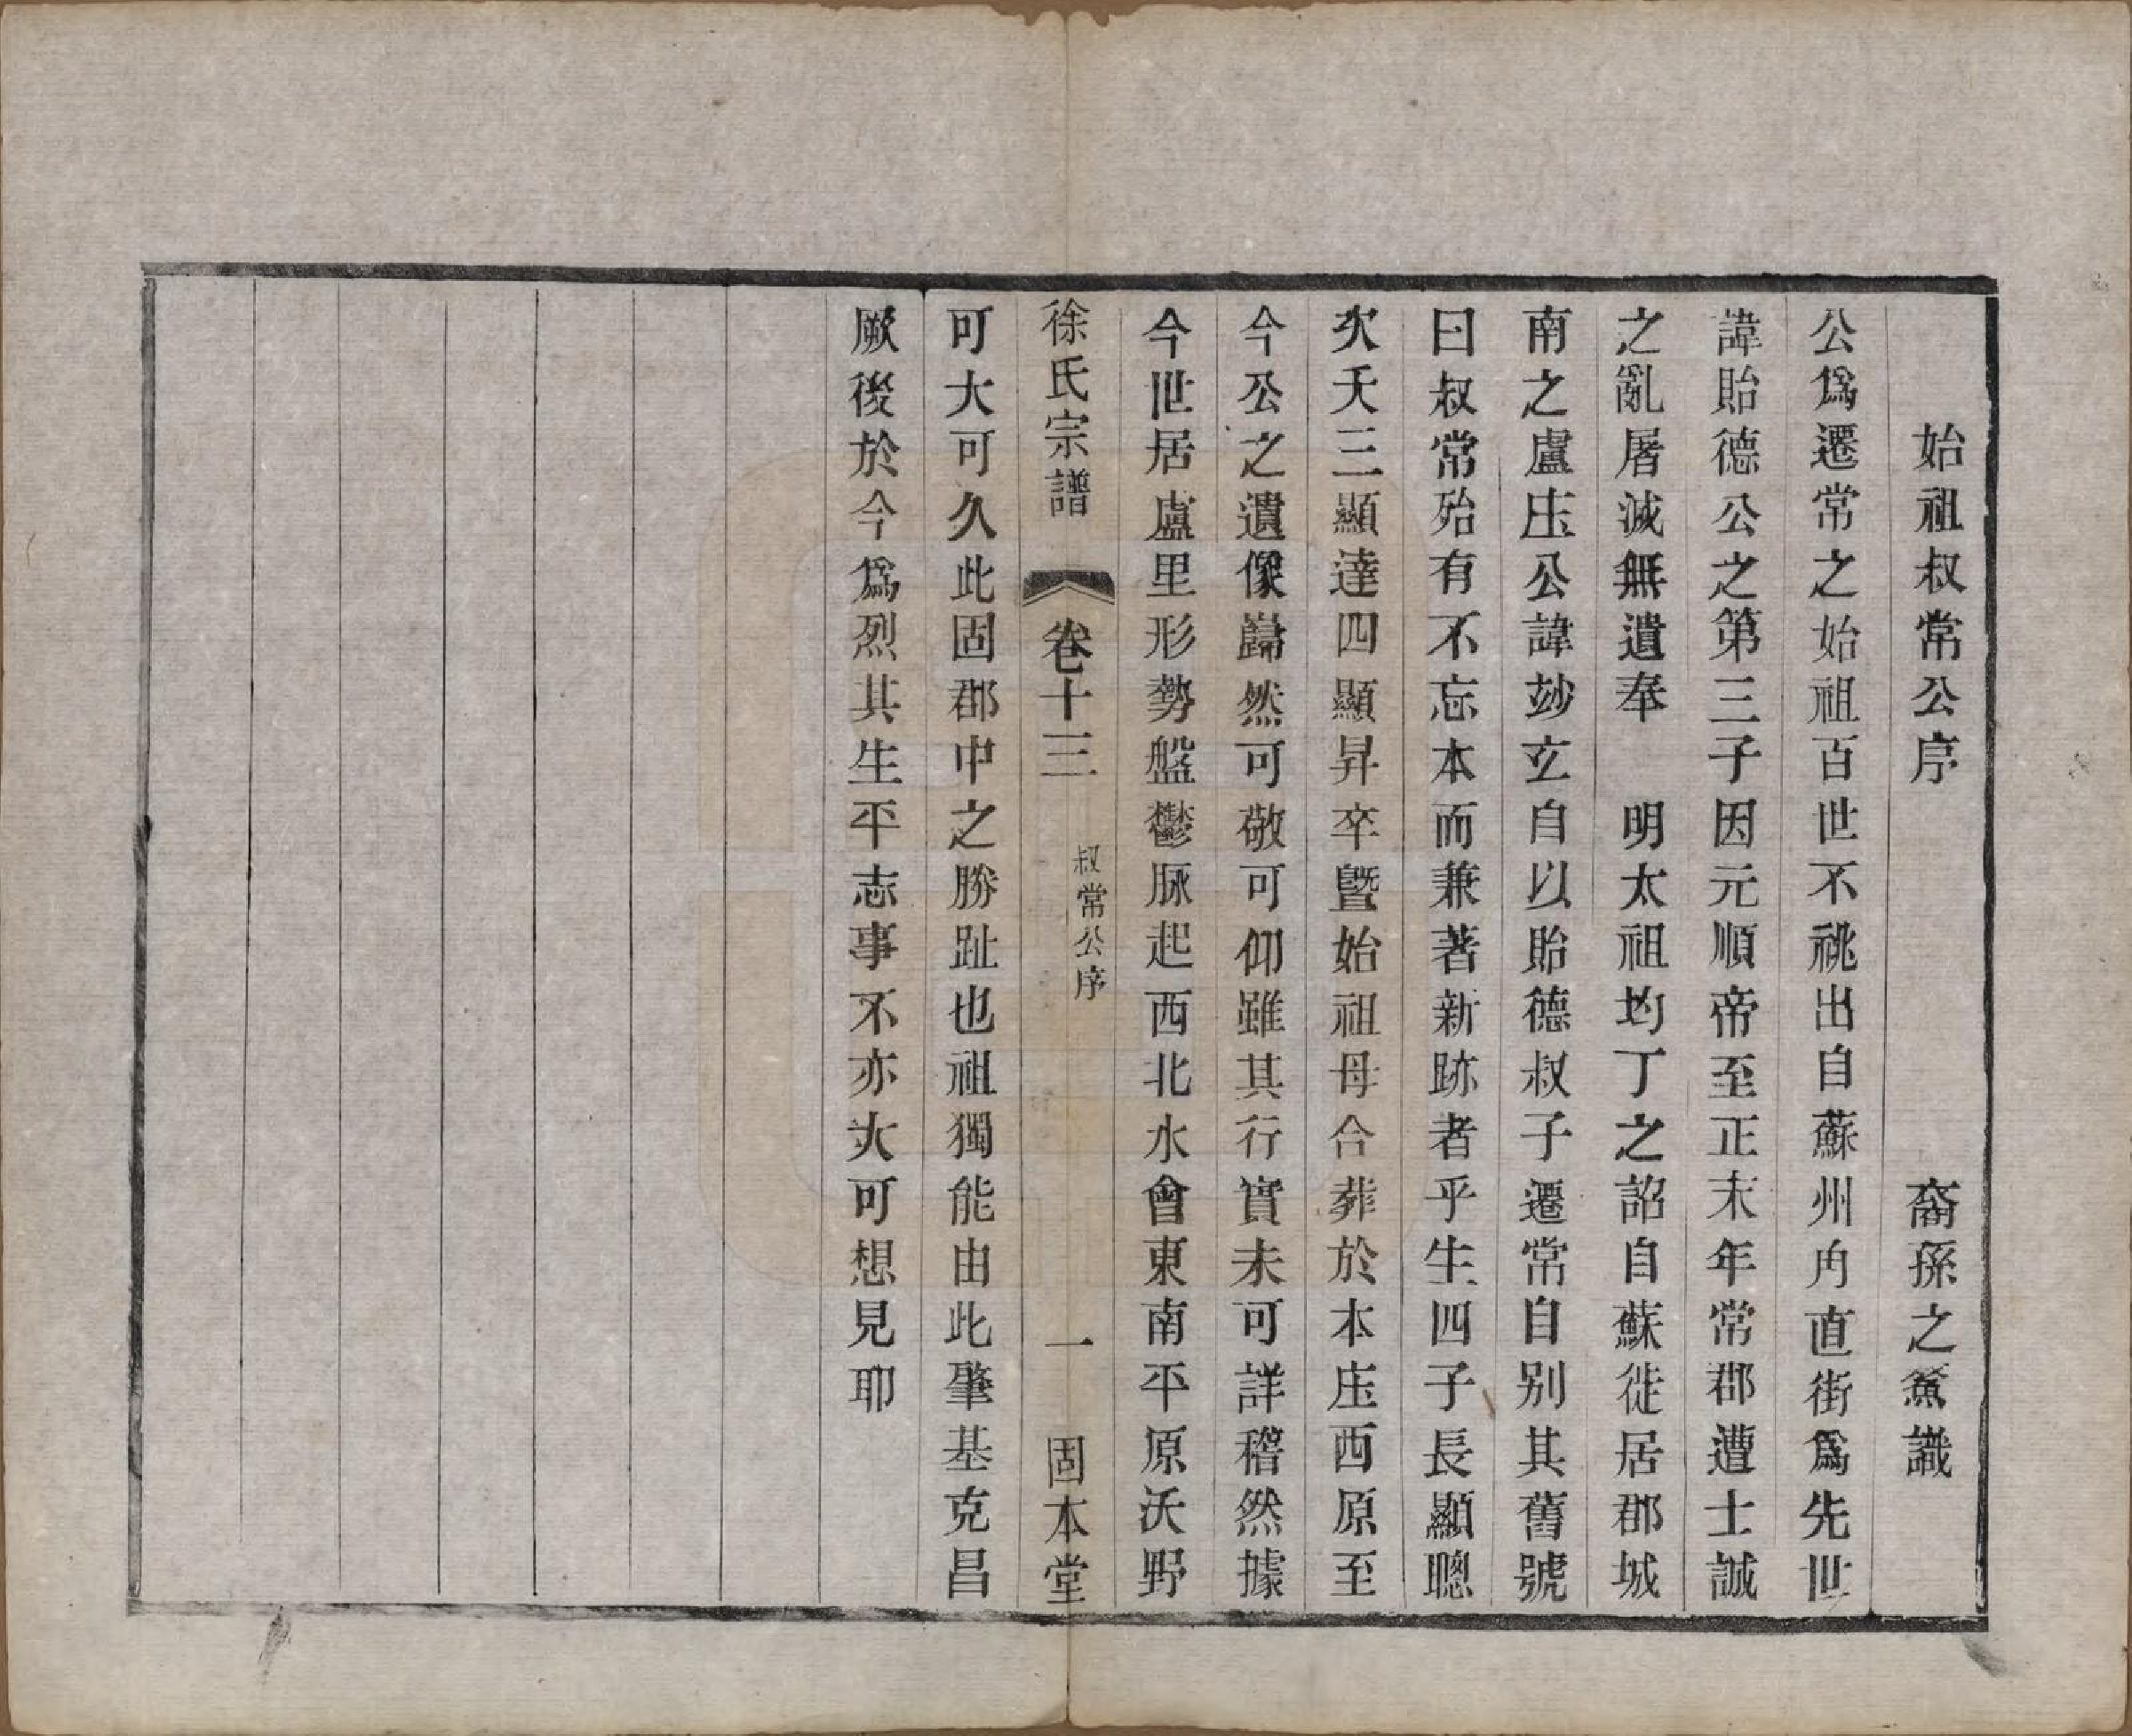 始祖叔常公序　裔孫之鯗識
公爲遷常之始祖百世不祧出自蘇州甪直街爲先世
諱貽德公之第三子因元順帝至正末年常郡遭士誠
之亂屠滅無遺奉　明太祖均丁之詔自蘇徙居郡城
南之盧庄公諱玅玄自以貽德叔子遷常自别其舊號
曰叔常殆有不忘本而兼著新跡者乎生四子長顯聰
次夭三顯達四顯昇卒曁始祖母合葬於本庄西原至
今公之遺像巋然可敬可仰雖其行實未可詳稽然據
今世居盧里形勢盤鬱脉起西北水會東南平原沃野
徐氏宗譜　卷十三　叔常公序　一　固本堂
可大可久此固郡中之勝趾也祖獨能由此肇基克昌
厥後於今爲烈其生平志事不亦大可想見耶